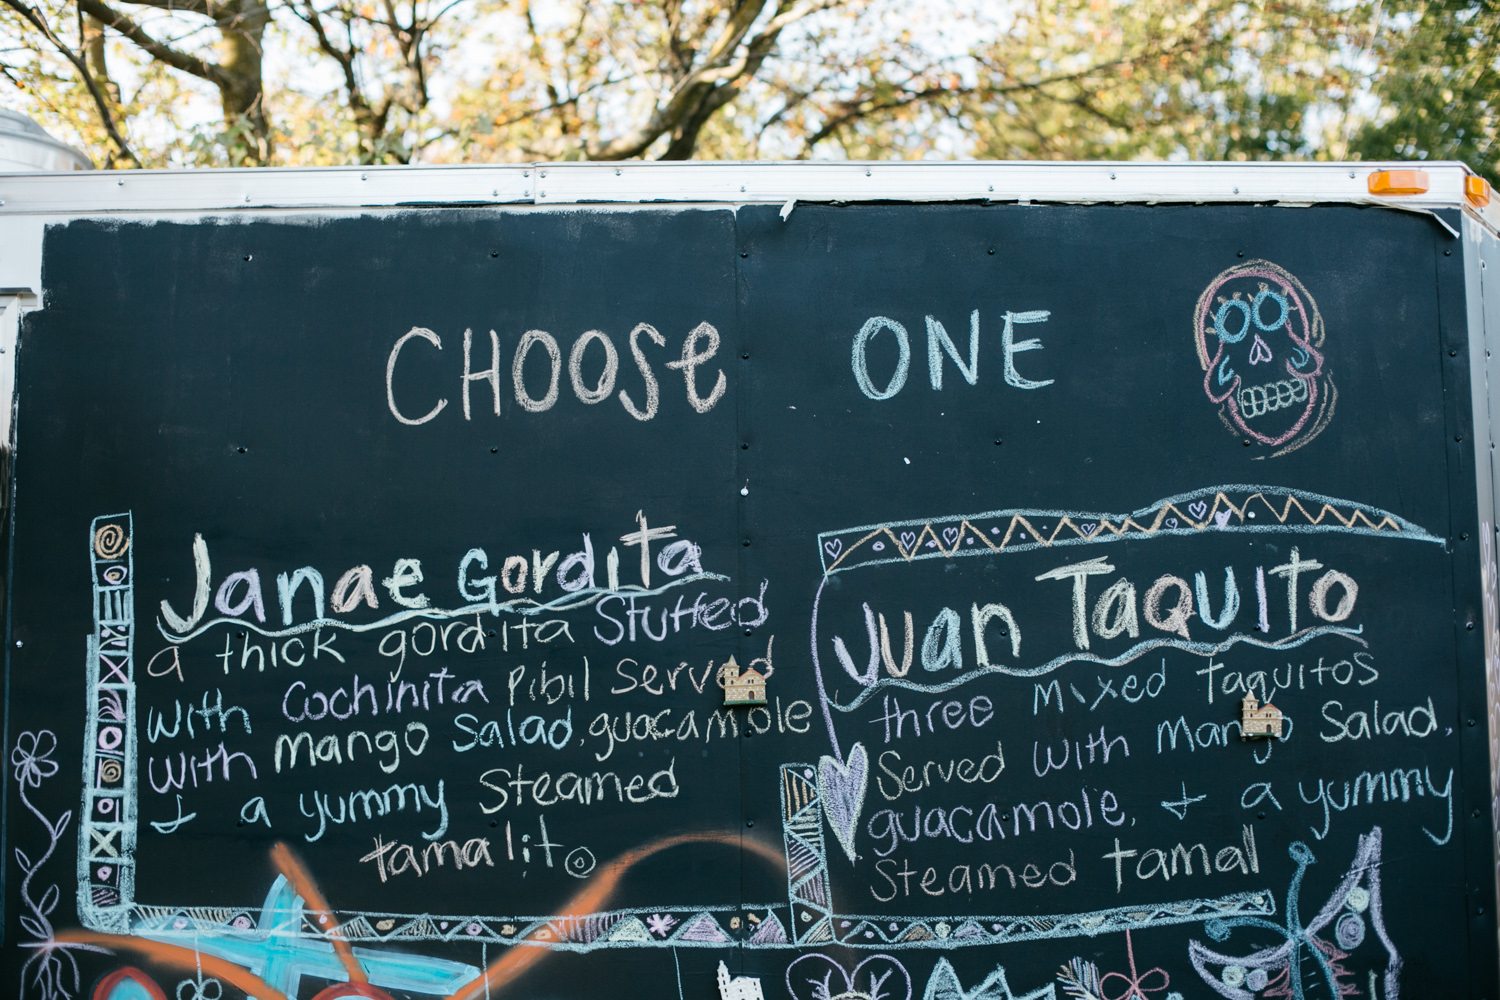 CHOOSE ONE
Janae Gordita
a thick gordita Stuffed
with Cochinita Pibil Served
with mango Salad, guacamole
+ a yummy Steamed
tamalito
Juan TaQUITO
three mixed taquitos
Served with mango Salad,
guacamole, + a yummy
Steamed tamal